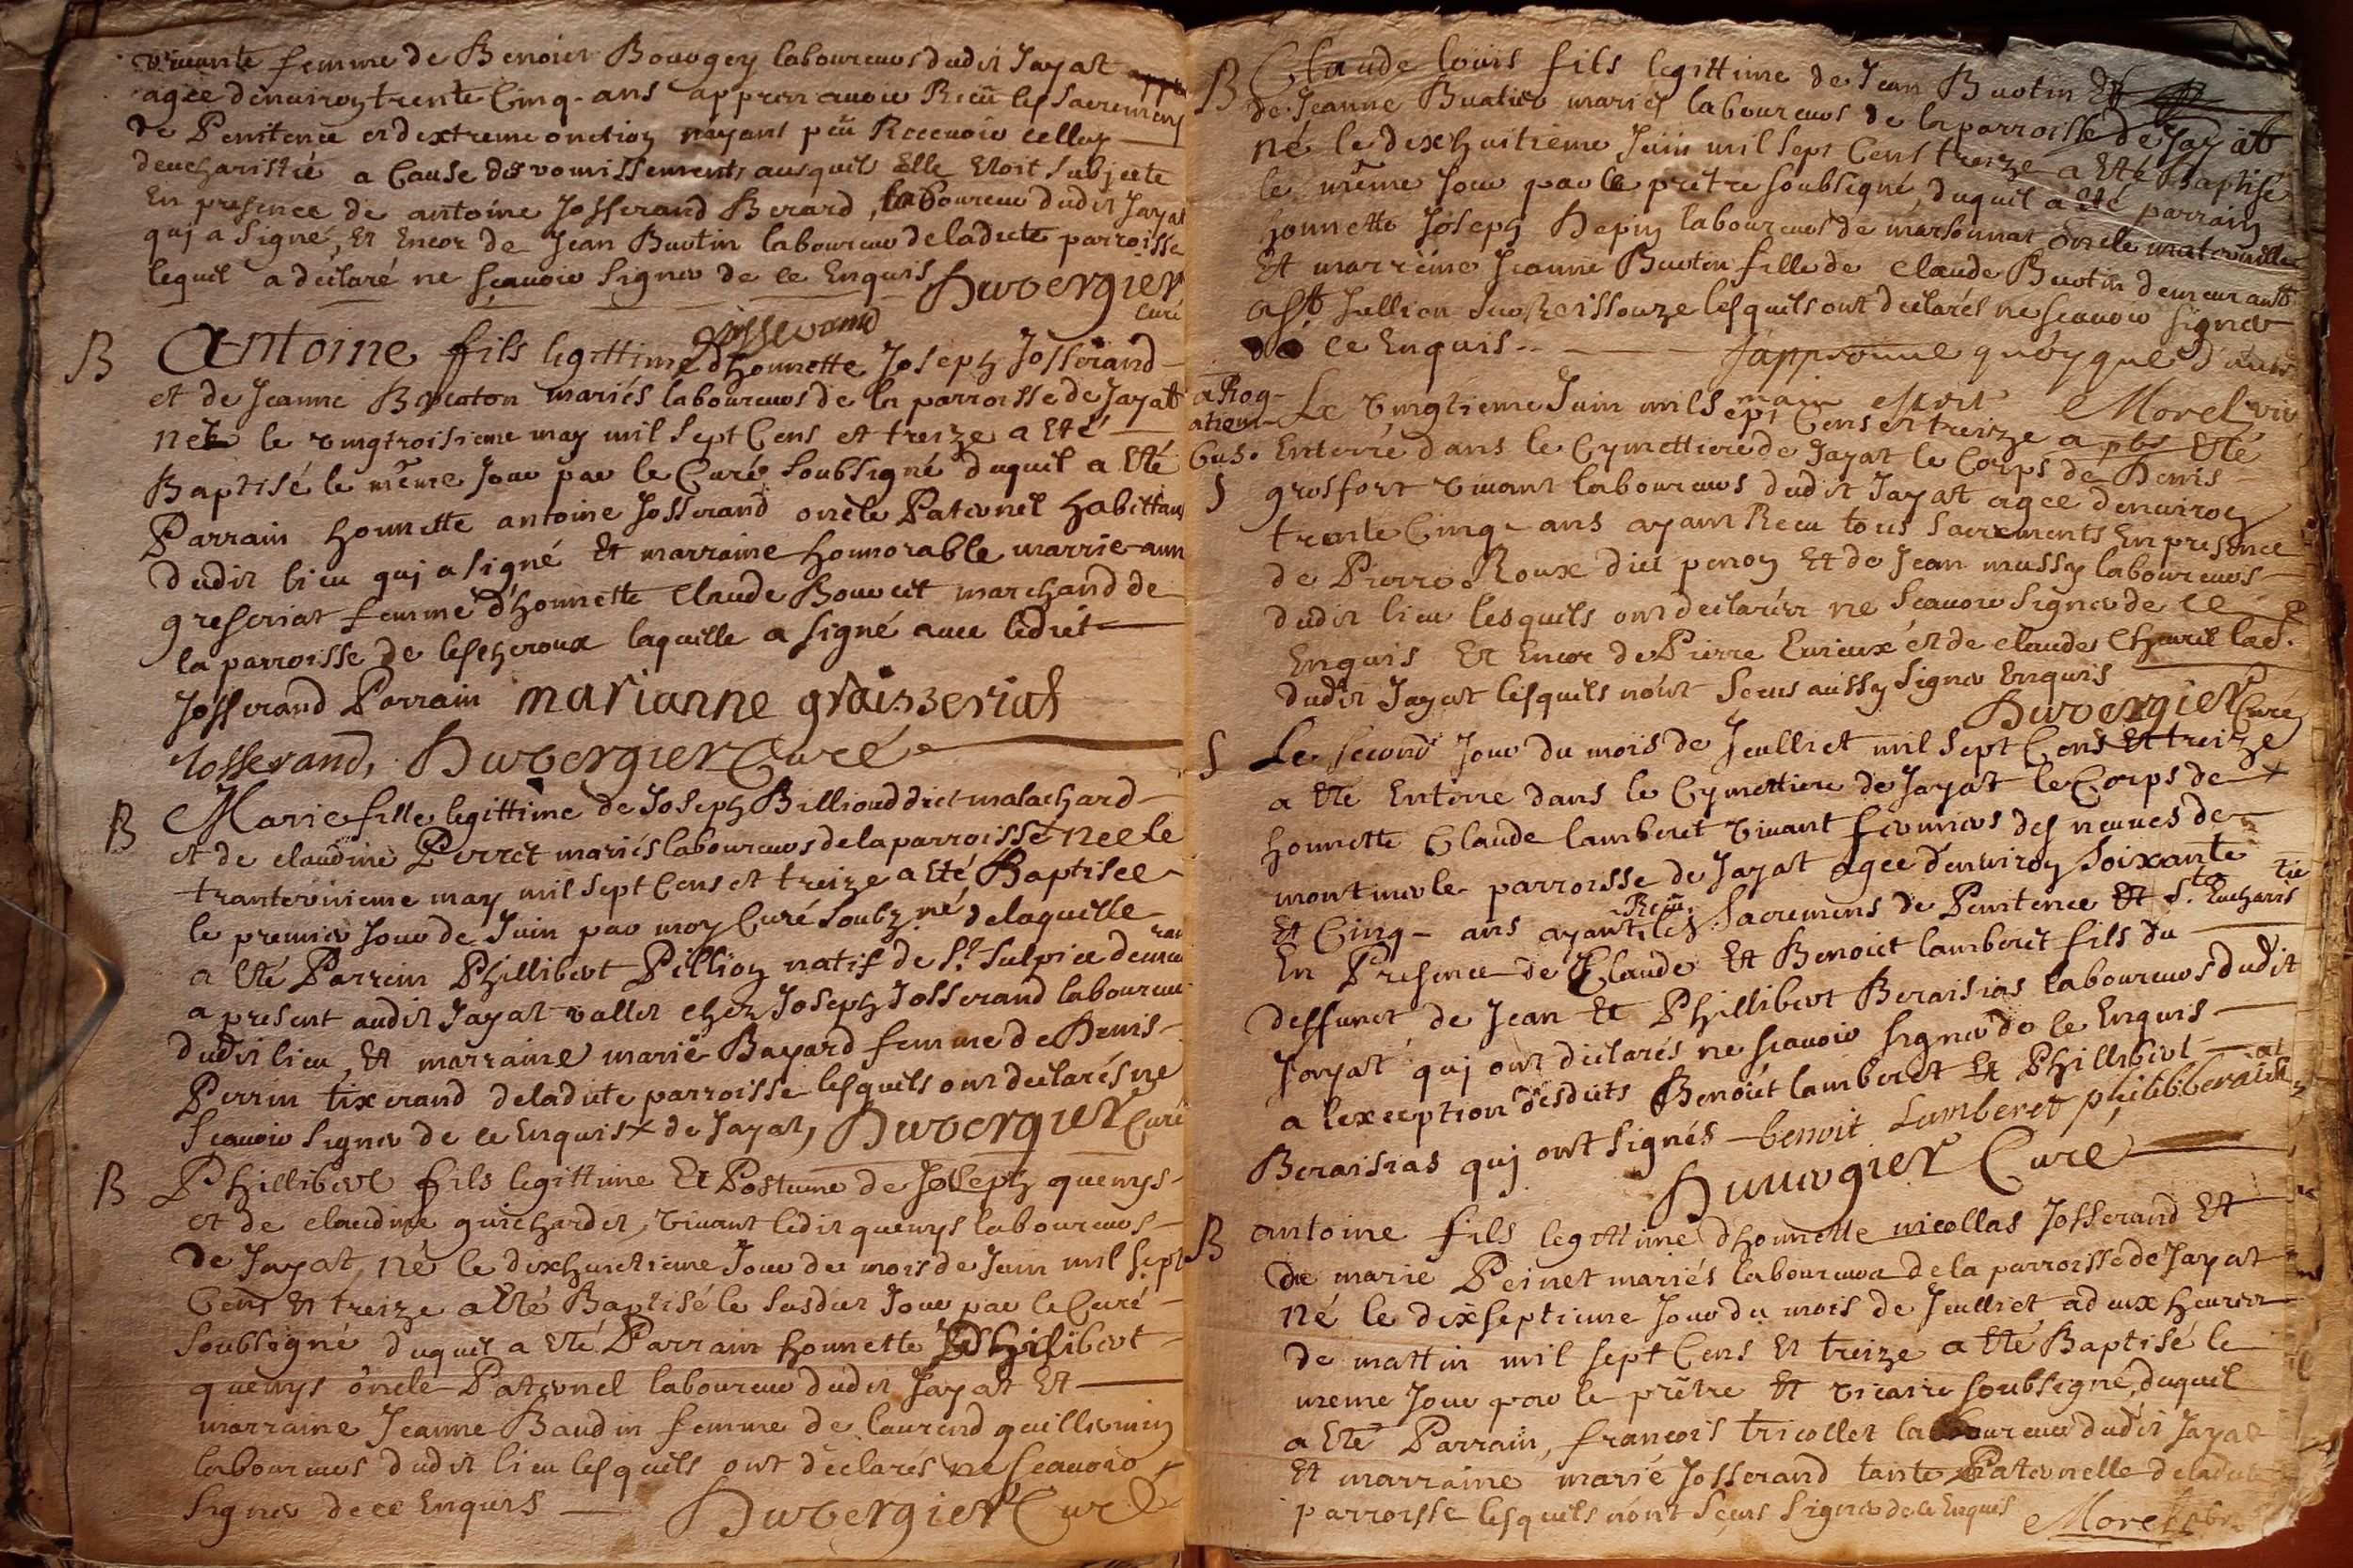 vivante femme de Benoict Bouvgey laboureurs dudit Jayat
agée denviron trente Cinq ans apprez avoir Recü les Sacremens
de Penitence et dextreme onction nayant pëu Recevoir celluy
deucharistie a Cause des vomissements ausquels Elle Etoit Subjecte
En presence de antoine Josserand Berard, laboureur dudit Jayat
qui a signé, Et Encor de Jean Buotin laboureur de ladicte parroisse
lequel a déclaré ne sçavoir signer de ce Enquis Duvergier
curé
josserand
B Antoine fils legittime dhonnette Joseph Josserand
et de Jeanne mariés laboureurs de la parroisse de Jayat
né le vingtroisieme may mil sept Cens et treize a Eté
Baptisé le même Jour par le Curé Soubsigné duquel a Eté
Parrain honnette antoine Josserand oncle Paternel habittan
dudit lieu qui a signé Et marraine honnorable marrie ann
greseriat femme d'honnette Claude Bouvet marchand de
la parroisse de lescheroux laquelle a signé avec ledict
Josserand Parrain marianne graisseriat
Josserand, Duvergier Curé
B Marie fille legittime de Joseph Billioud dict malachard
et de claudine Perret mariés laboureurs de la parroisse née le
trantevnieme may mil sept Cens et treize a Eté Baptisée
le premier Jour de Juin par moy Curé Soubzné de laquelle
a Eté Parrein Phillibert Pillion natif de St Sulpice demeu
ran
a present audit Jayat vallet chez Joseph Josserand laboureur
dudit lieu, Et marraine marie Bayard femme de Denis
Perrin tixerand de ladite parroisse lesquels ont declarés ne
sçavoir signer de ce Enquis + de Jayat, Duvergier Curé
B Phillibert fils legittime Et Postume de Joseph quenys
et de claudine guichardet, vivant ledit quenys laboureurs
de Jayat, né le dixhuictieme Jour du mois de Juin mil sept
Cens Et treize a Eté Baptisé le susdit Jour par le Curé
Soubsigné duquel a Eté Parrain honnette Philibert
quenys oncle Paternel laboureur dudit Jayat Et
marraine Jeanne Baudin femme de laurend guillermin
laboureurs dudit lieu lesquels ont déclarés ne sçavoir
signer de ce Enquis Duvergier Curé
B Claude louis fils legittime de Jean Buotin Et
de Jeanne Buatier mariés laboureurs de la parroisse de Jayat
né le dixhuitieme Juin mil sept Cens treize a Eté Baptisé
le même Jour par le prêtre soubsigné, duquel a Eté parrain
honnette Joseph Depin laboureurs de marsonnat oncle maternelle
Et marreine Jeanne Buotin fille de Claude Buotin demeurant
a St Jullien sur Reissouze lesquels ont declarés ne sçavoir signer
de ce Enquis. Japprouve quoyque d'autre
main escrit Morel vic
pbr
Le vingtieme Juin mil sept Cens et treize a Eté
Enterré dans le Cymettiere de Jayat le Corps de Denis
S grosfort vivant laboureurs dudit Jayat agée denviron
trente Cinq ans ayant Recu tous Sacrements En presence
de Pierre Roux dict penoy Et de Jean mussy laboureurs
dudit lieu lesquels ont declarér ne Scavoir signer de ce
Enquis Et Encor de Pierre Curieux et de claude
dudit Jayat lesquels n'ont Sceus aussy signer Enquis
Duvergier Curé
S Le second Jour du mois de Jeulliet mil sept Cens Et treize
a Eté Enterre dans le Cymettiere de Jayat le Corps de +
honnette Claude lamberet vivant fermiers des neuves de
montmerle parroisse de Jayat agee denviron soixante
Et Cinq ans ayant Recu les Sacremens de Penitence Et Ste Eucharis
tie
En Presence de Claude Et Benoict lamberet fils du
deffunct de Jean Et Phillibert Beraisias laboureurs dudit
Jayat qui ont déclarés ne sçavoir signer de ce Enquis
a lexception desdits Benoict lamberet Et Phillibert
Beraisias qui ont signés benoit Lamberet
Duvergier Curé
B antoine fils legittime dhonnette nicollas Josserand Et
de marie Peinet mariés laboureurs de la parroisse de Jayat
né le dixseptieme Jour du mois de Jeulliet a deux heures
de mattin mil sept Cens Et treize a Eté Baptisé le
meme Jour par le prêtre Et vicaire soubsigné, duquel
a Eté Parrain, francois tricollet laboureur dudit Jayat
Et marraine marie Josserand tante Paternelle de ladite
parroisse lesquels n'ont sceus signer de ce Enquis Morel pbr